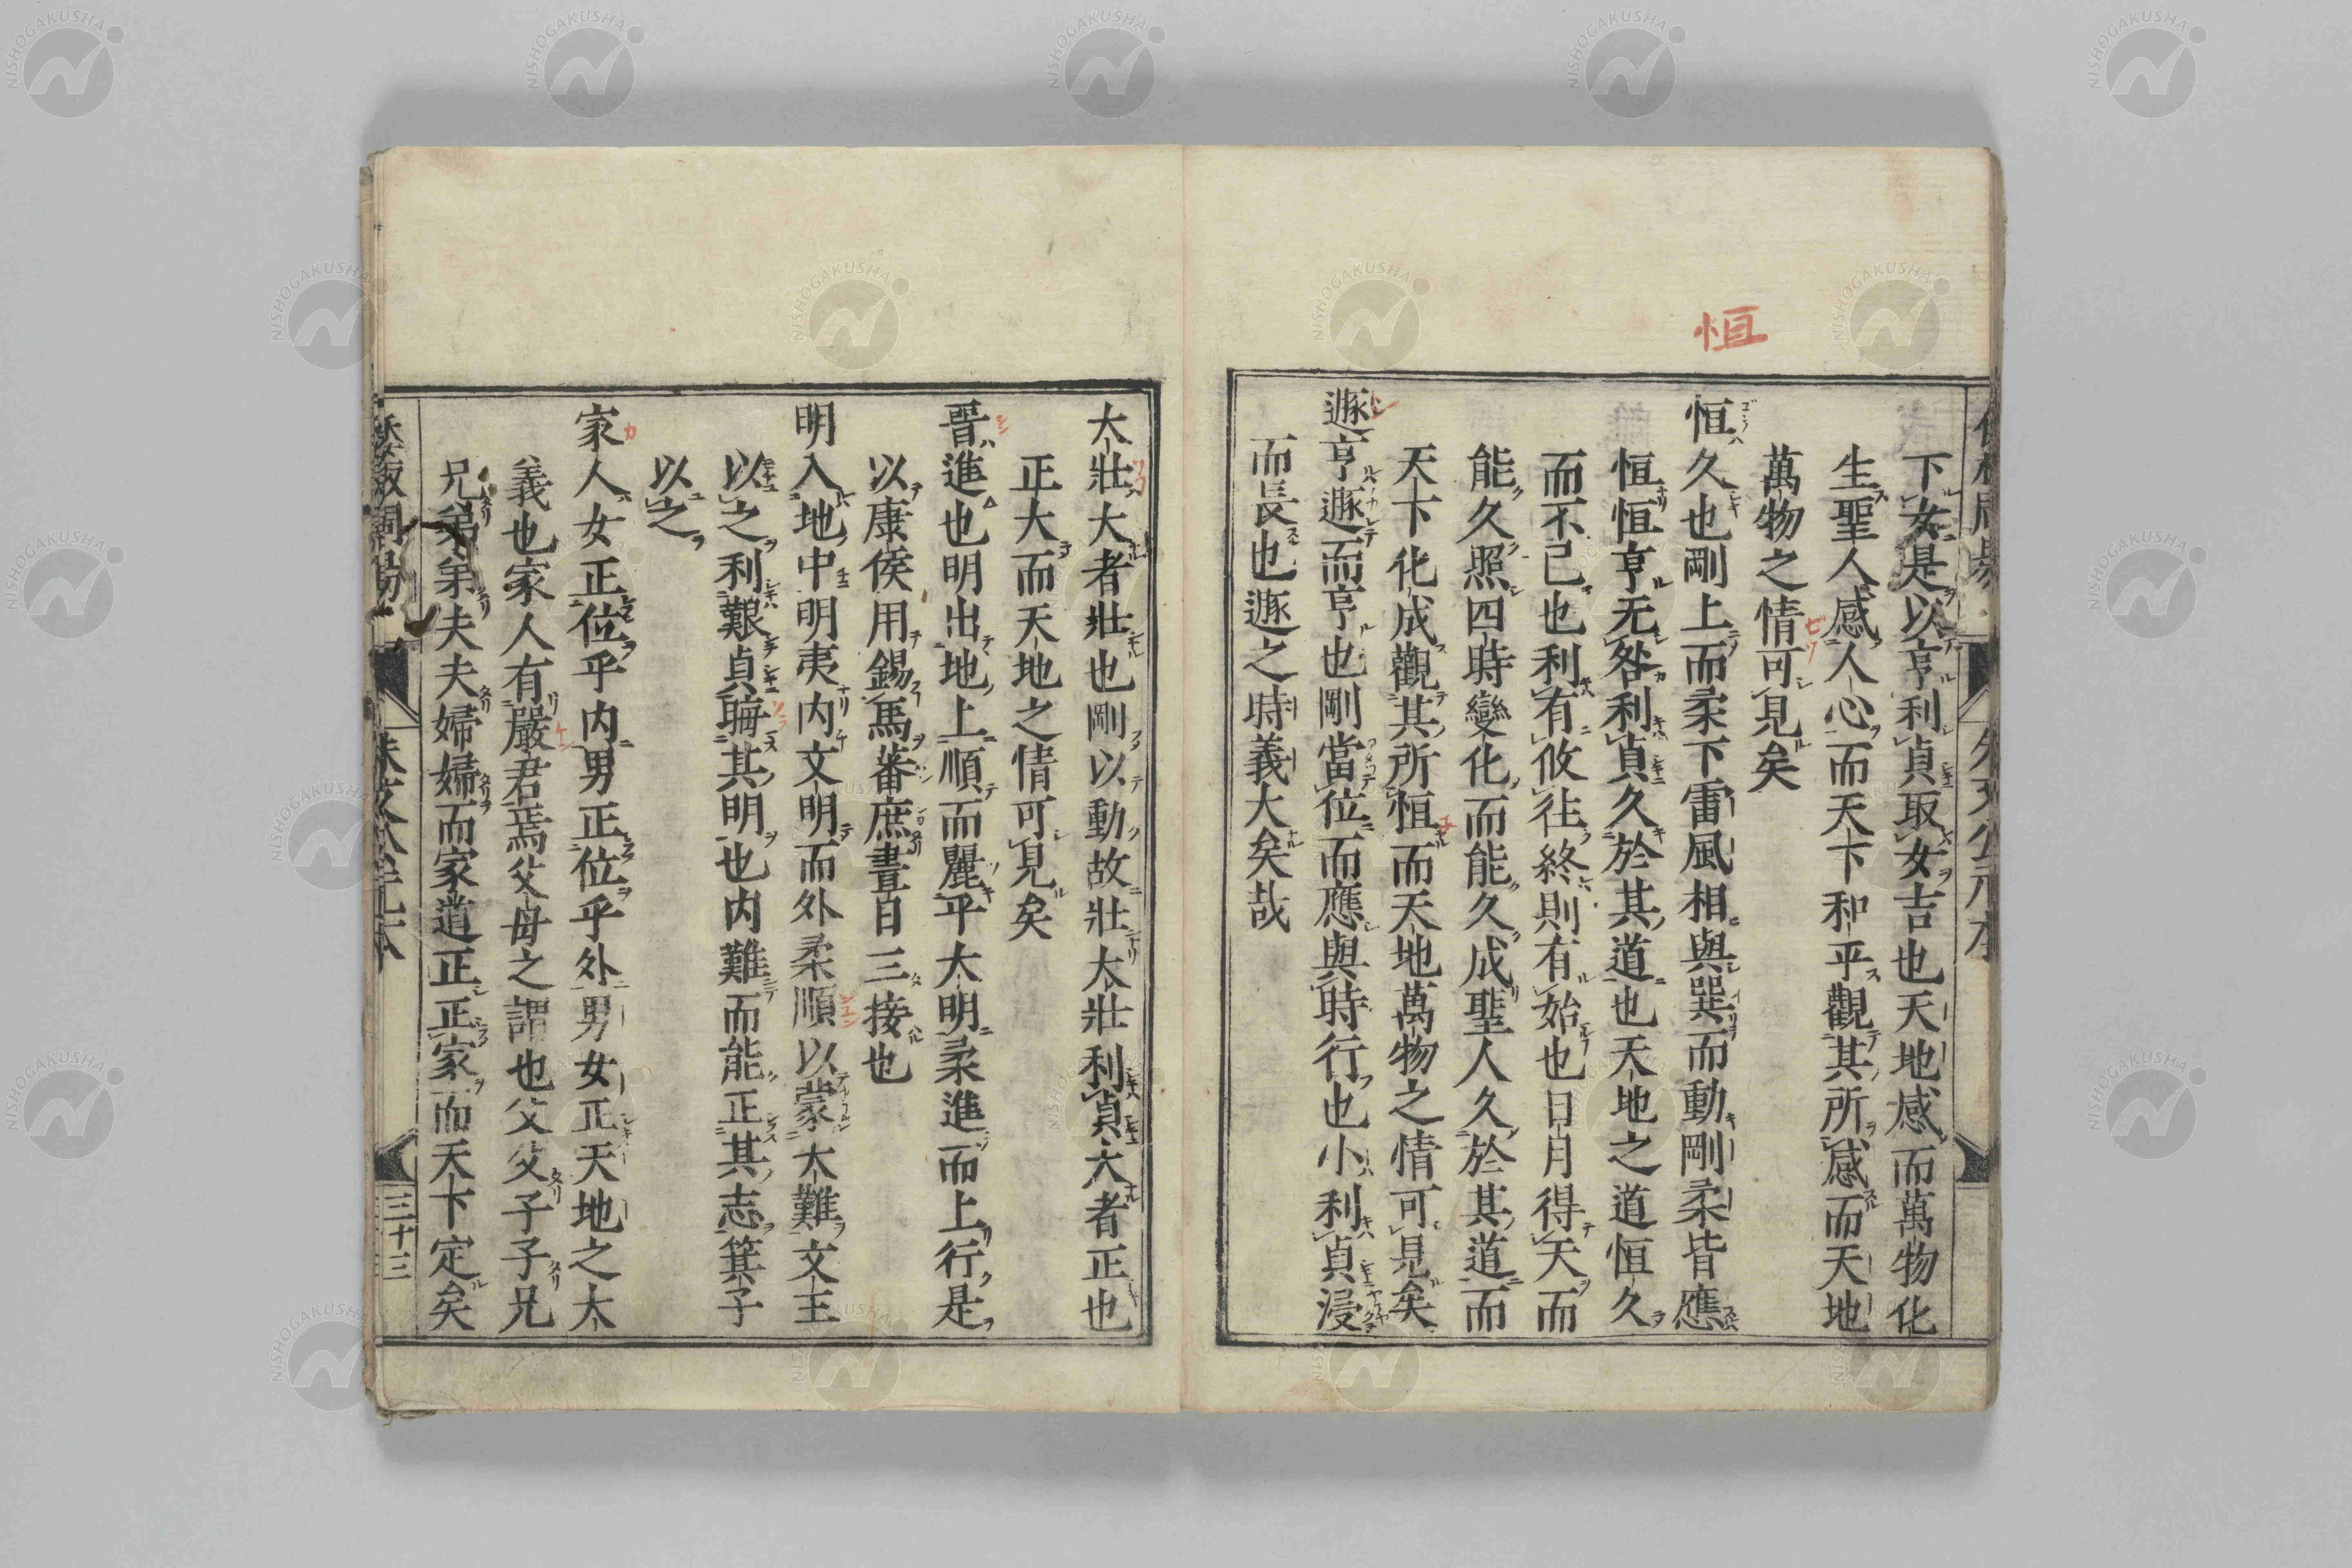 恒
下女是以亨利貞取女吉也天地感而萬物化
生聖人感人心而天下和平觀其所感而天地
萬物之情可見矣
恒久也剛上而柔下雷風相與巽而動剛柔皆應
恒恒亨无咎利貞久於其道也天地之道恒久
而不已也利有攸往終則有始也日月得天而
能久照四時變化而能久成聖人久於其道而
天下化成觀其所恒而天地萬物之情可見矣
遯亨遯而亨也剛當位而應與時行也小利貞浸
而長也遯之時義大矣哉
大壯大者壯也剛以動故壯大壯利貞大者正也
正大而天地之情可見矣
晉進也明出地上順而麗乎大明柔進而上行是
以康侯用錫馬蕃庶晝日三接也
明入地中明夷內文明而外柔順以蒙大難文王
以之利艱貞晦其明也內難而能正其志箕子
以之
家人女正位乎內男正位乎外男女正天地之大
義也家人有嚴君焉父母之謂也父父子子兄
兄弟弟夫夫婦婦而家道正正家而天下定矣
三十三
NISHOGAKUSHA